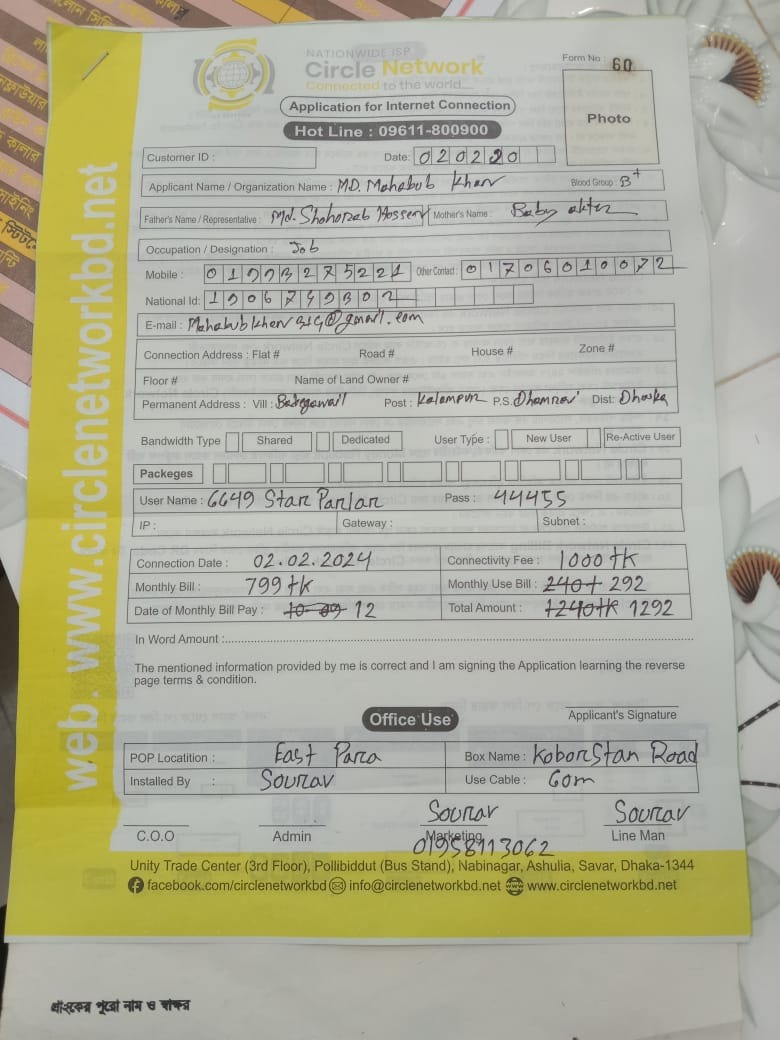 NATIONWIDE ISP
Circle Network
Connected to the world...
Form No : 60
Application for Internet Connection
Photo
Hot Line : 09611-800900
Customer ID :
Date: 020220
Applicant Name / Organization Name : MD. Mahabub Khan Blood Group : B+
Father's Name / Representative : Md. Mother's Name : Baby akter
Occupation / Designation : Job
Mobile : Other Contact : 01706010072
National Id:
E-mail :
Connection Address : Flat # Road # House # Zone #
Floor # Name of Land Owner #
Permanent Address : Vill : Post : Kalampur P.S. Dhamrai Dist: Dhaka
Bandwidth Type Shared Dedicated User Type : New User Re-Active User
Packeges
User Name : 6649 Star Parlar Pass : 44455
IP : Gateway : Subnet :
Connection Date : 02.02.2024 Connectivity Fee : 1000 tk
Monthly Bill : 799 tk Monthly Use Bill : 240+ 292
Date of Monthly Bill Pay : 12 Total Amount : 1240tk 1292
In Word Amount :
The mentioned information provided by me is correct and I am signing the Application learning the reverse
page terms & condition.
Office Use
Applicant's Signature
POP Locatition : East Para Box Name : KoborStan Road
Installed By : Sourav Use Cable : 60m
Sourav Sourav
C.O.O Admin Marketing Line Man
01958113062
Unity Trade Center (3rd Floor), Pollibiddut (Bus Stand), Nabinagar, Ashulia, Savar, Dhaka-1344
facebook.com/circlenetworkbd info@circlenetworkbd.net www.circlenetworkbd.net
web: www.circlenetworkbd.net